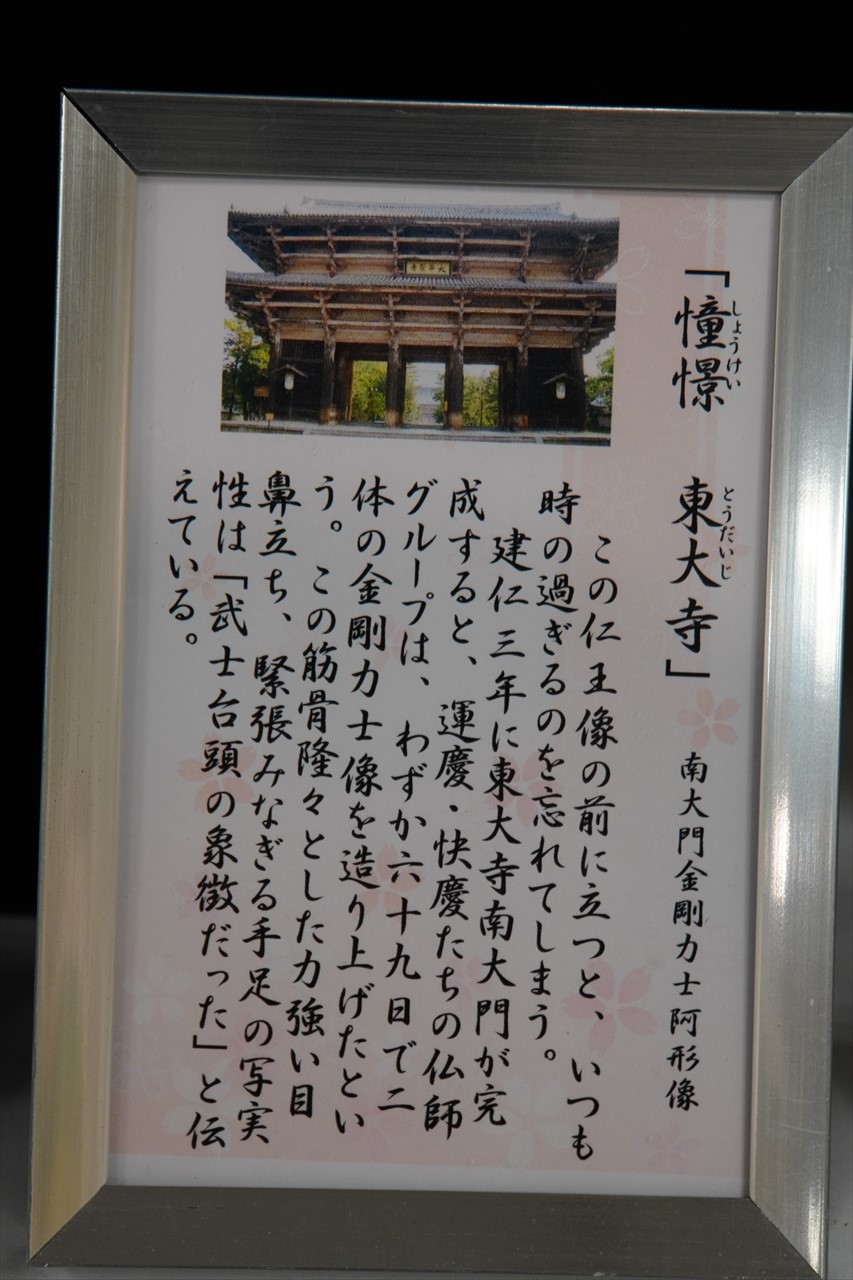 「憧憬 東大寺」 南大門金剛力士阿形像
しょうけい とうだいじ
この仁王像の前に立つと、いつも
時の過ぎるのを忘れてしまう。
建仁三年に東大寺南大門が完
成すると、運慶・快慶たちの仏師
グループは、わずか六十九日で二
体の金剛力士像を造り上げたとい
う。この筋骨隆々とした力強い目
鼻立ち、緊張みなぎる手足の写実
性は「武士台頭の象徴だった」と伝
えている。